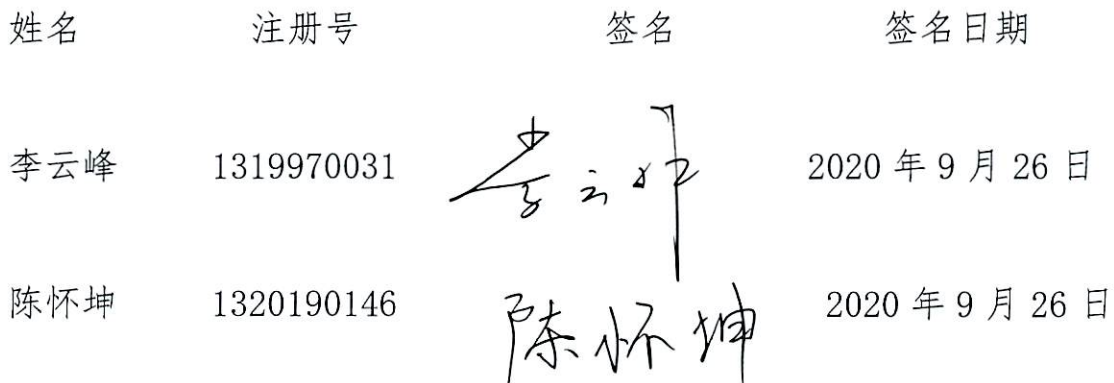 姓名 注册号 签名 签名日期
李云峰 1319970031 李云峰 2020 年 9 月 26 日
陈怀坤 1320190146 陈怀坤 2020 年 9 月 26 日